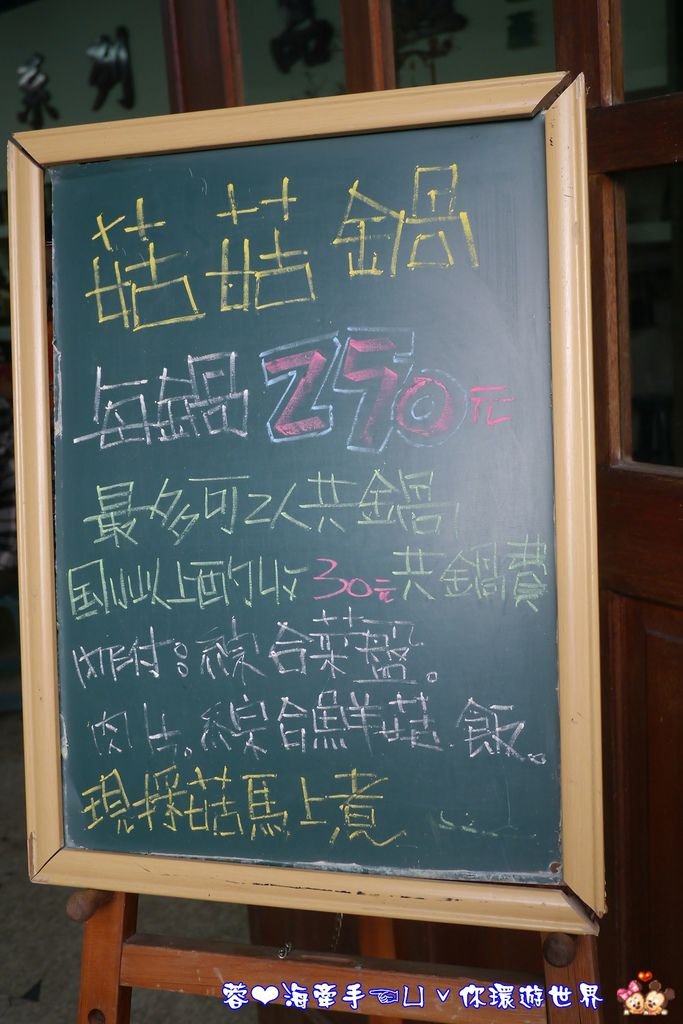 菇菇鍋
每鍋250元
最多可2人共鍋
國小以上酌收30元共鍋費
附付:綜合菜盤。
肉片。綜合鮮菇.飯。
現採菇馬上煮
蓉❤海牽手☜凵ˇ你環遊世界